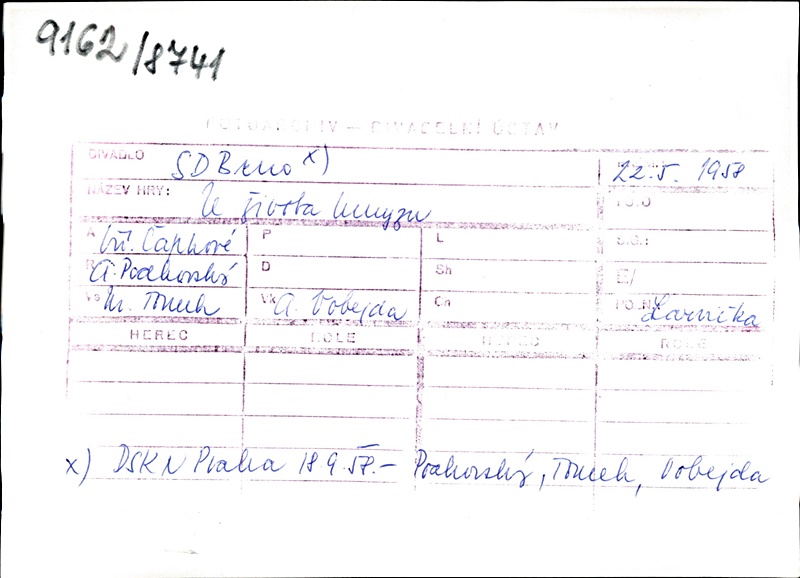 9162/8741
FOTOARCHIV — DIVADELNÍ ÚSTAV
DIVADLO SD Brno x) 22. 5. 1958
NÁZEV HRY: Ze života hmyzu
A bří. Čapkové P L
R A. Podhorský D Sh
Vs M. Tomek Vk A. Vobejda Ch POZN.
HEREC ROLE HEREC ROLE
x) DSKN Praha 18 9. 58. — Podhorský, Tomek, Vobejda